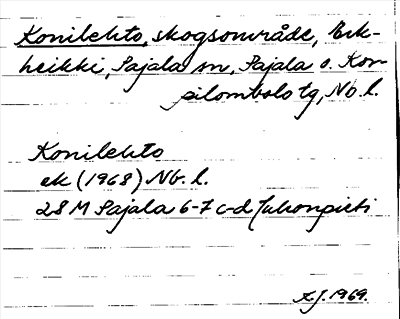 Konilehto, skogsområde, Erk-
heikki, Pajala sn, Pajala o. Kor-
pilombolo tg, Nb. l.
Konilehto
ek (1968) Nb. l.
28 M Pajala 6-7 c-d Juhonpieti
A.J. 1969.